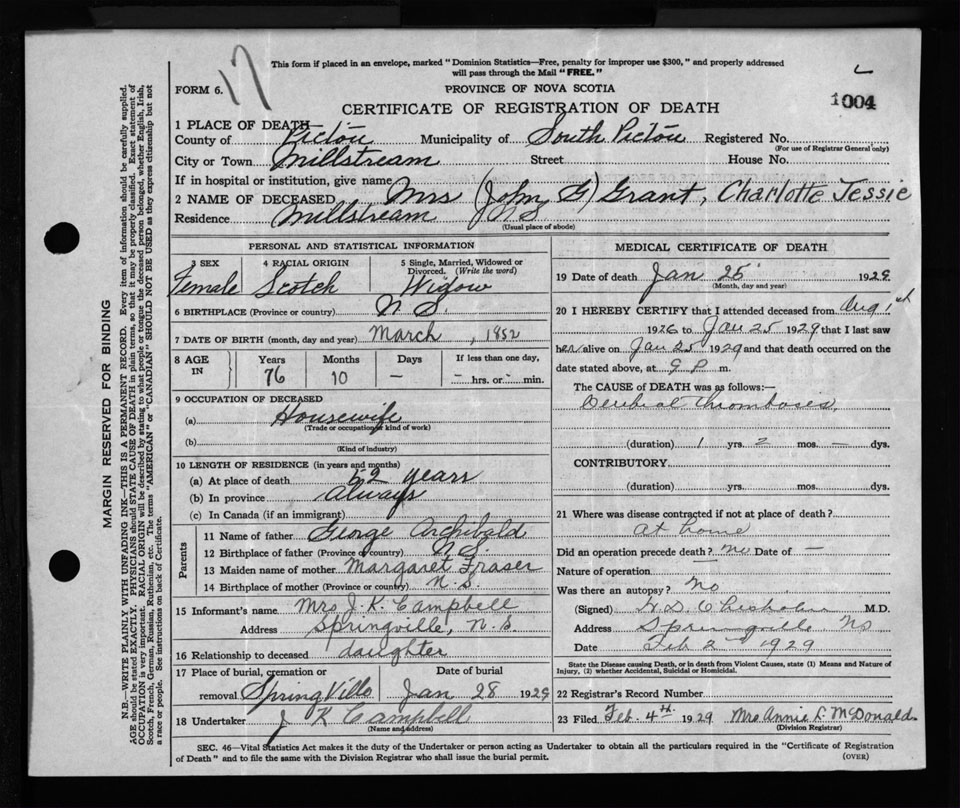 17
This form if placed in an envelope, marked "Dominion Statistics—Free, penalty for improper use $300," and properly addressed
will pass through the Mail "FREE."
FORM 6.
PROVINCE OF NOVA SCOTIA
1004
CERTIFICATE OF REGISTRATION OF DEATH
1 PLACE OF DEATH—
County of Pictou Municipality of South Pictou Registered No.
(For use of Registrar General only)
City or Town Millstream Street House No.
If in hospital or institution, give name
2 NAME OF DECEASED Mrs (John G) Grant, Charlotte Jessie
Residence Millstream N S
(Usual place of abode)
PERSONAL AND STATISTICAL INFORMATION
3 SEX 4 RACIAL ORIGIN 5 Single, Married, Widowed or Divorced. (Write the word)
Female Scotch Widow
6 BIRTHPLACE (Province or country) N S.
7 DATE OF BIRTH (month, day and year) March, 1852
8 AGE IN Years Months Days If less than one day,
76 10 — — hrs. or — min.
9 OCCUPATION OF DECEASED
(a) Housewife
(Trade or occupation or kind of work)
(b)
(Kind of industry)
10 LENGTH OF RESIDENCE (in years and months)
(a) At place of death 52 years
(b) In province always
(c) In Canada (if an immigrant)
Parents
11 Name of father George Archibald
12 Birthplace of father (Province or country) N S.
13 Maiden name of mother Margaret Fraser
14 Birthplace of mother (Province or country) N. S.
15 Informant's name Mrs J. K. Campbell
Address Springville, N. S.
16 Relationship to deceased daughter
17 Place of burial, cremation or Date of burial
removal SpringVille Jan 28 1929
18 Undertaker J K Campbell
(Name and address)
MEDICAL CERTIFICATE OF DEATH
19 Date of death Jan 25 1929
(Month, day and year)
20 I HEREBY CERTIFY that I attended deceased from Aug 1st
1926 to Jan 25 1929 that I last saw
her alive on Jan 25 1929 and that death occurred on the
date stated above, at 9 P m.
The CAUSE of DEATH was as follows:—
Cerebral Thrombosis,
(duration) 1 yrs. 2 mos. — dys.
CONTRIBUTORY
(duration) yrs. mos. dys.
21 Where was disease contracted if not at place of death?
at home
Did an operation precede death? no Date of —
Nature of operation —
Was there an autopsy? No
(Signed) Chisholm M.D.
Address Springville NS
Date Feb 2nd 1929
State the Disease causing Death, or in death from Violent Causes, state (1) Means and Nature of
Injury, (2) whether Accidental, Suicidal or Homicidal.
22 Registrar's Record Number
23 Filed Feb. 4th. 1929 Mrs Annie L McDonald
(Division Registrar)
SEC. 46—Vital Statistics Act makes it the duty of the Undertaker or person acting as Undertaker to obtain all the particulars required in the "Certificate of Registration
of Death" and to file the same with the Division Registrar who shall issue the burial permit.
(OVER)
MARGIN RESERVED FOR BINDING
N.B.—WRITE PLAINLY WITH UNFADING INK—THIS IS A PERMANENT RECORD. Every item of information should be carefully supplied.
AGE should be stated EXACTLY. PHYSICIANS should STATE CAUSE OF DEATH in plain terms, so that it may be properly classified. Exact statement of
OCCUPATION is very important. RACIAL ORIGIN will be described by stating to what people or tongue the deceased person belonged, whether English, Irish,
Scotch, French, German, Russian, Ruthenian, etc. The terms "AMERICAN" or "CANADIAN" SHOULD NOT BE USED as they express citizenship but not
a race or people. See instructions on back of Certificate.